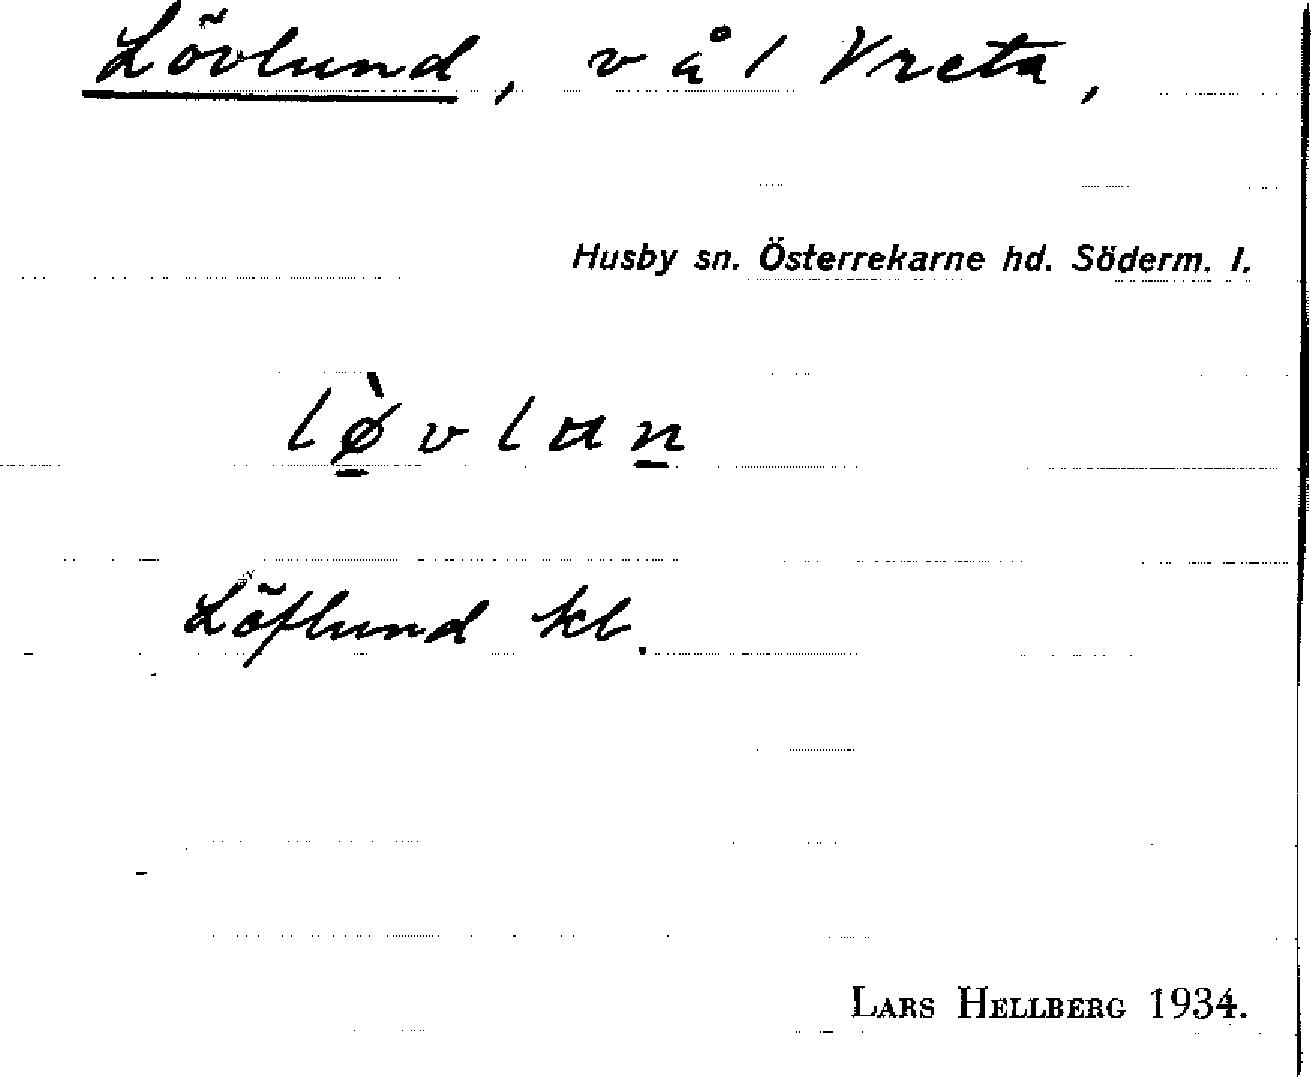 Lövlund, v å l Vreta,
Husby sn. Österrekarne hd. Söderm. l.
lø̱̀vlɯṉ
Löflund kb.
LARS HELLBERG 1934.